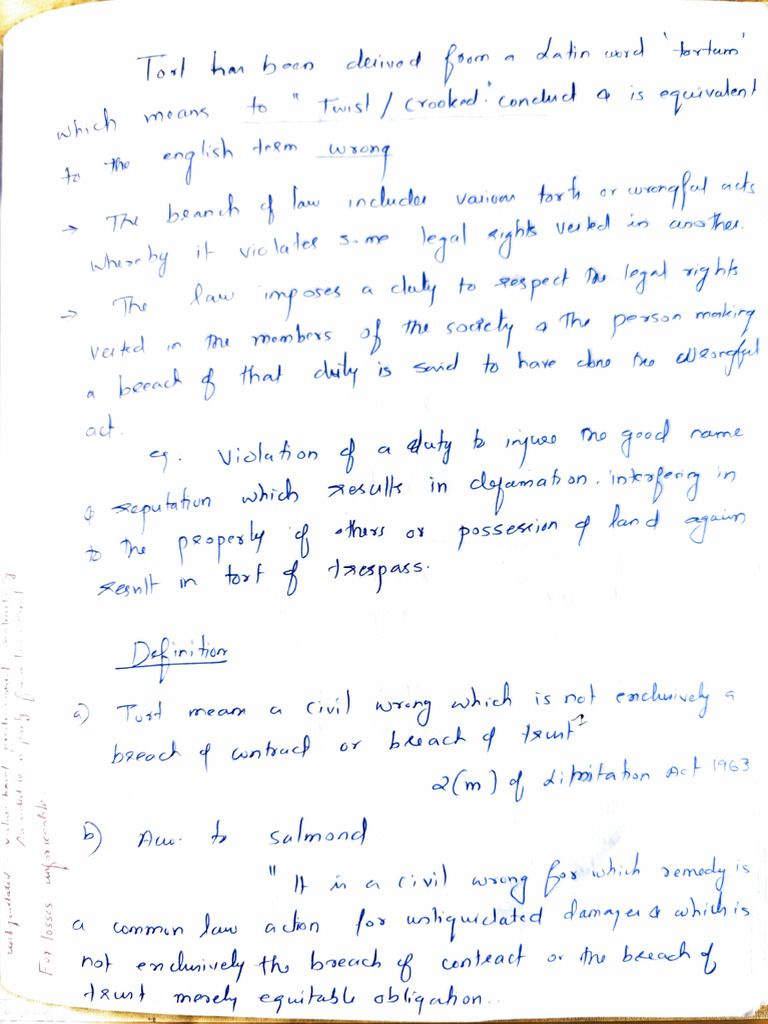 Tort has been derived from a Latin word 'tortum'
which means to "Twist / Crooked" conduct & is equivalent
to the english term wrong
→ The branch of law includes various torts or wrongful acts
whereby it violates some legal rights vested in another.
→ The law imposes a duty to respect the legal rights
vested in the members of the society & the person making
a breach of that duty is said to have done the wrongful
act.
eg. Violation of a duty to injure the good name
& reputation which results in defamation. interfering in
to the property of others or possession of land again
result in tort of trespass.
Definition
a) Tort means a civil wrong which is not exclusively a
breach of contract or breach of trust"
2(m) of Limitation Act 1963
b) Acc. to Salmond
"It is a civil wrong for which remedy is
a common law action for unliquidated damages & which is
not exclusively the breach of contract or the breach of
trust merely equitable obligation..
For losses unforseeable